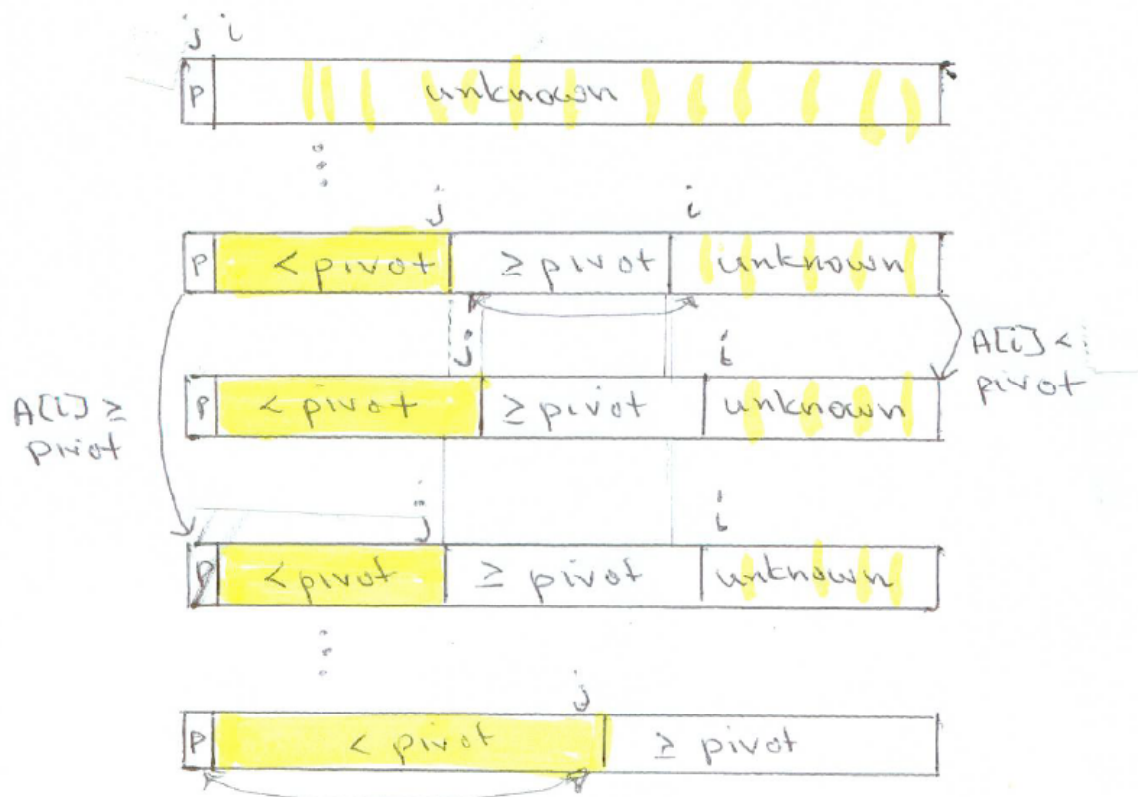 j i
p unknown
j i
p < pivot ≥ pivot unknown
j i
A[i] < pivot
A[i] ≥ pivot
p < pivot ≥ pivot unknown
j i
p < pivot ≥ pivot unknown
j
p < pivot ≥ pivot